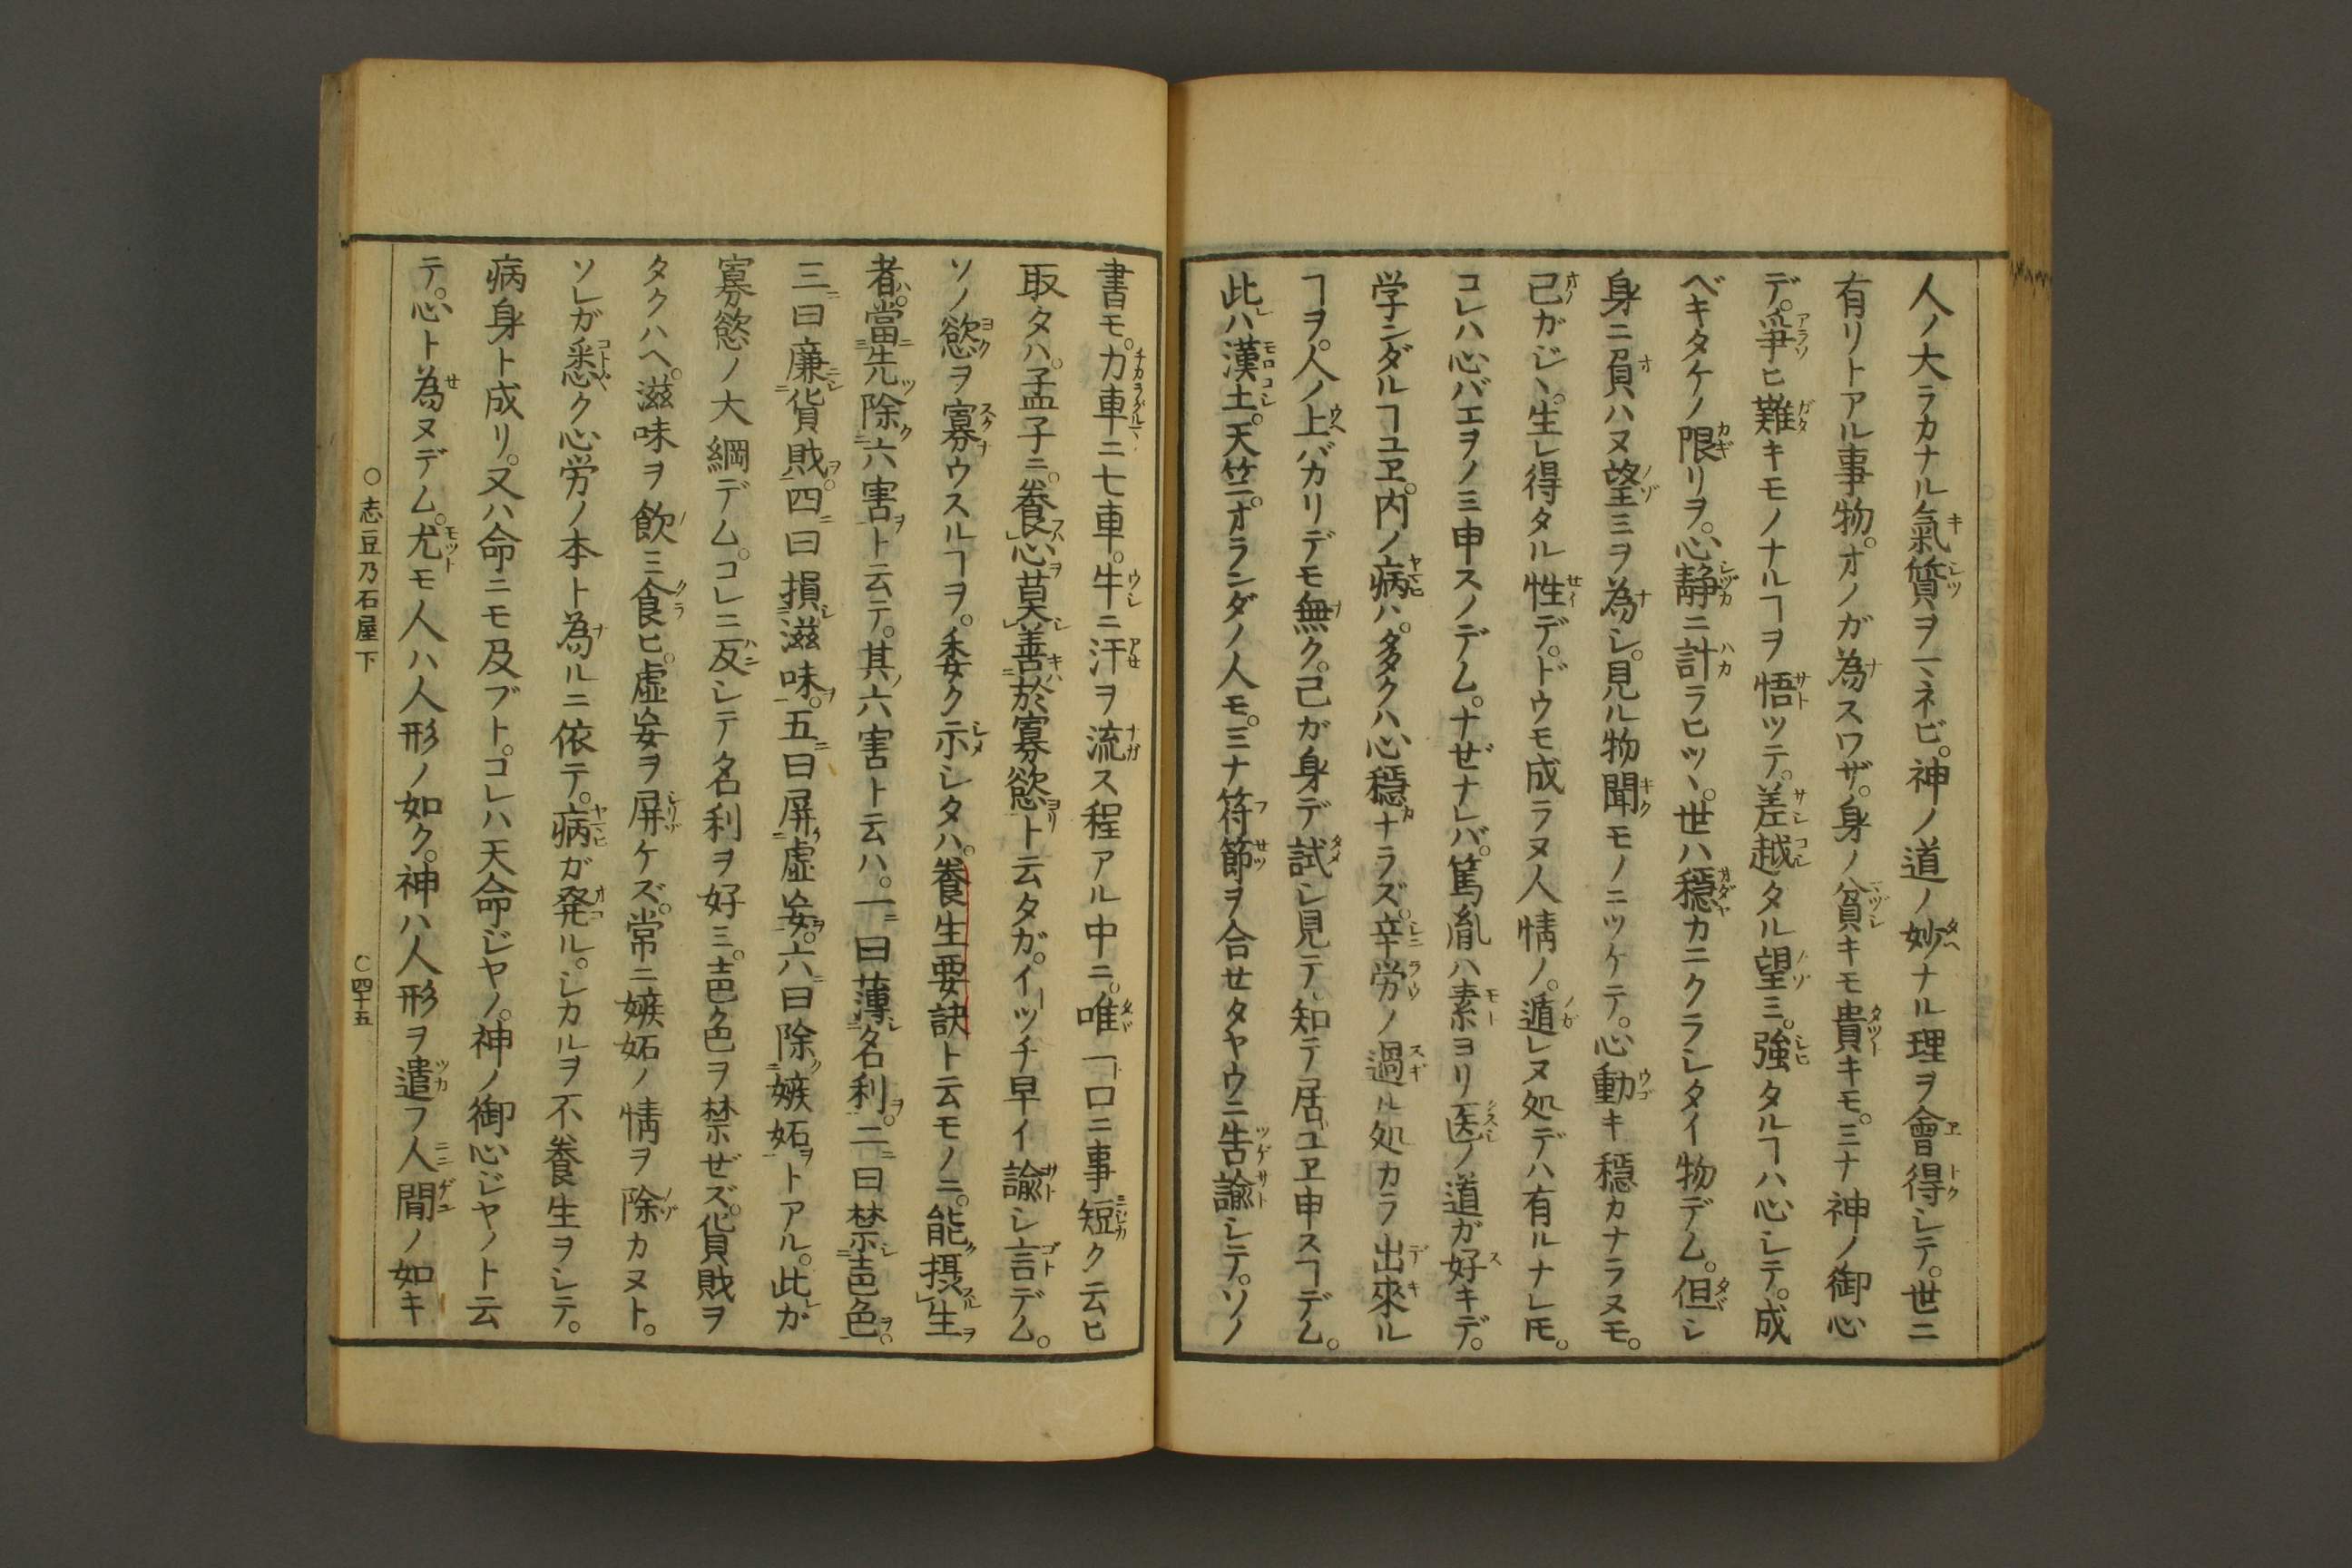 人ノ大ラカナル氣質ヲマネビ。神ノ道ノ妙ナル理ヲ會得シテ。世ニ
有リトアル事物。オノガ為スワザ。身ノ貧キモ貴キモ。ミナ神ノ御心
デ。爭ヒ難キモノナルヿヲ悟ツテ。差越タル望ミ。強タルヿハ心シテ。成
ベキタケノ限リヲ。心静ニ計ラヒツヽ。世ハ穏カニクラシタイ物デム。但シ
身ニ負ハヌ望ミヲ為シ。見ル物聞モノニツケテ。心動キ穏カナラヌモ。
己ガジヽ。生レ得タル性デ。ドウモ成ラヌ人情ノ。遁レヌ処デハ有ルナレ𪜈。
コレハ心バエヲノミ申スノデム。ナゼナレバ。篤胤ハ素ヨリ医ノ道ガ好キデ。
学ンダルヿユヱ。内ノ病ハ。多クハ心穏ナラズ。辛労ノ過ル処カラ出來ル
ヿヲ。人ノ上バカリデモ無ク。己ガ身デ試シ見テ、知テ居ユヱ申スヿデム。
此ハ漢土。天竺。オランダノ人モ。ミナ符節ヲ合セタヤウニ告諭シテ。ソノ
書モ。力車ニ七車。牛ニ汗ヲ流ス程アル中ニ。唯一口ニ事短ク云ヒ
取タハ。孟子ニ。養心莫善於寡慾ト云タガ。イツチ早イ諭シ言デム。
ソノ慾ヲ寡ウスルヿヲ。委ク示シタハ。養生要訣ト云モノニ。能摂生
者。當先除六害ト云テ。其六害ト云ハ。一曰薄名利。二曰禁声色。
三曰廉貨財。四曰損滋味。五曰屏虚妄。六曰除嫉妬トアル。此ガ
寡慾ノ大綱デム。コレニ反シテ名利ヲ好ミ。声色ヲ禁ゼズ。貨財ヲ
タクハヘ。滋味ヲ飲ミ食ヒ。虚妄ヲ屏ケズ。常ニ嫉妬ノ情ヲ除カヌト。
ソレガ悉ク心労ノ本ト為ルニ依テ。病ガ発ル。シカルヲ不養生ヲシテ。
病身ト成リ。又ハ命ニモ及ブト。コレハ天命ジヤノ。神ノ御心ジヤノト云
テ。心ト為ヌデム。尤モ人ハ人形ノ如ク。神ハ人形ヲ遣フ人間ノ如キ
○志豆乃石屋下
○四十五